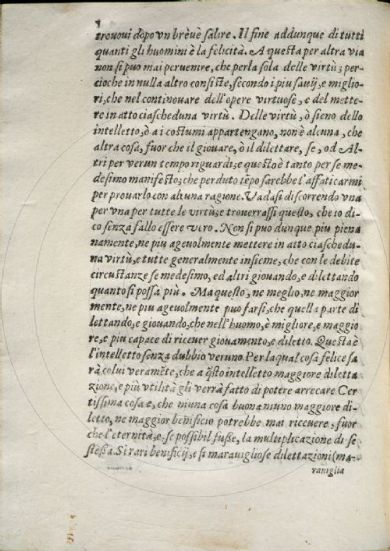 trovovi dopo vn brève salire. Il fine addunque di tutti
quanti gli huomini è la felicità. A questa per altra via
non si puo mai peruenire, che per la sola delle virtù; per-
cioche in nulla altro consiste, secondo i piu savij, e miglio-
ri, che nel continouare dell'opere virtuose, e del mette-
re in atto ciascheduna virtù. Delle virtù, ò sieno dello
intelletto, ò a i costumi appartengano, non è alcuna, che
altra cosa, fuor che il giouare, ò il dilettare, se, od Al-
tri per verun tempo riguardi; e questo è tanto per se me-
desimo manifesto; che perduto tẽpo sarebbe l'affaticarmi
per prouarlo con alcuna ragione. Vadasi discorrendo vna
per vna per tutte le virtù; e trouerassi questo, che io di-
co senza fallo essere vero. Non si puo dunque piu piena
namente, ne piu ageuolmente mettere in atto ciaschedu-
na virtù, e tutte generalmente insieme; che con le debite
circustanze se medesimo, ed altri giouando, e dilettando
quanto si possa più. Ma questo, ne meglio, ne maggior
mente, ne piu ageuolmente puo farsi, che quella parte di
lettando, e giouando, che nell'huomo, è migliore, e maggio
re, e piu capace di riceuer giouamento, e diletto. Questa è
l'intelletto senza dubbio veruno. Per la qual cosa felice sa
rà colui veramẽte, che a q̃sto intelletto maggiore diletta
zione, e più vtilità gli verrà fatto di potere arrecare. Cer
tissima cosa e, che niuna cosa buona niuno maggiore di-
letto, ne maggior beneficio potrebbe mai riceuere, fuor
che l'eternità; e se possibil fusse, la multiplicazione di se
stessa. Si rari beneficij, e si marauigliose dilettazioni (ma-
rauiglia